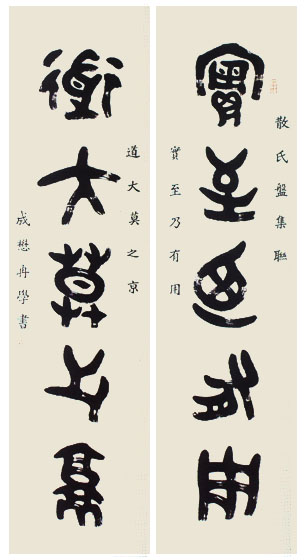 散氏盤集聯
實至乃有用
實至乃有用
道大莫之京
道大莫之京
成懋冉學書